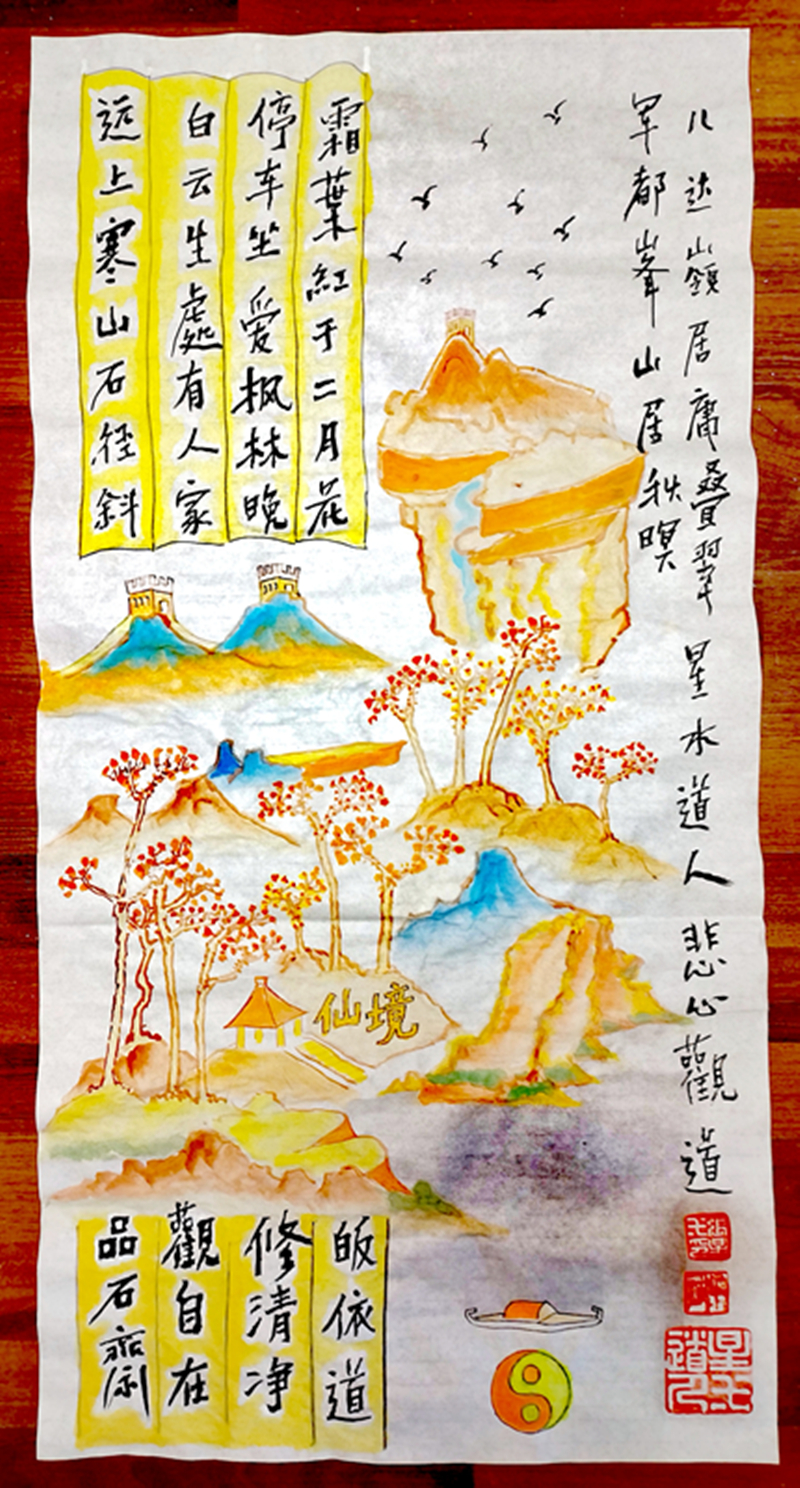 八达嶺居庸疊翠 星水道人 悲心觀道
军都峯山居秋暝
远上寒山石径斜
白云生處有人家
停车坐爱枫林晚
霜葉紅于二月花
仙境
皈依道
修清净
觀自在
品石齋
星水道人